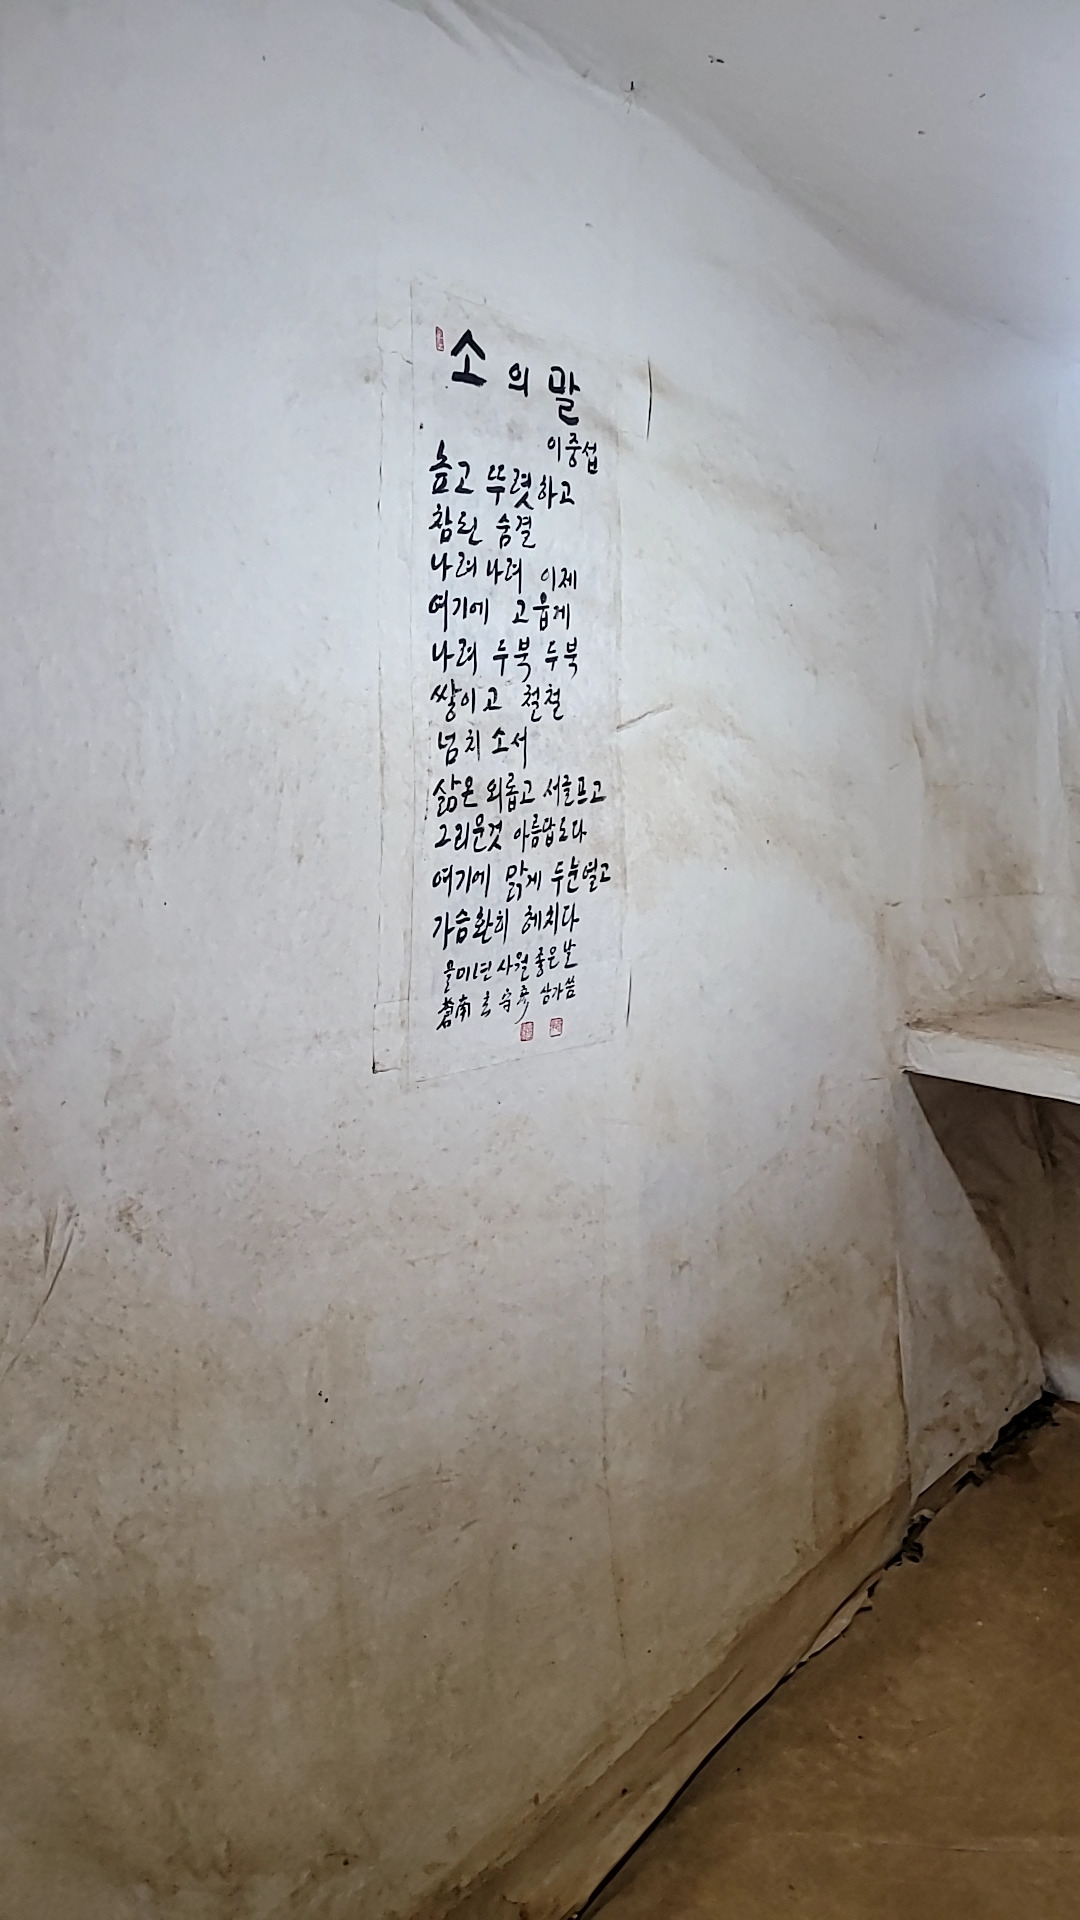 소의 말
이중섭
높고 뚜렷하고
참된 숨결
나려 나려 이제
여기에 고웁게
나려 두북 두북
쌓이고 철철
넘치소서
삶은 외롭고 서글프고
그리운것 아름답도다
여기에 맑게 두눈열고
가슴환히 헤치다
을미년 사월 좋은날
南 삼가씀